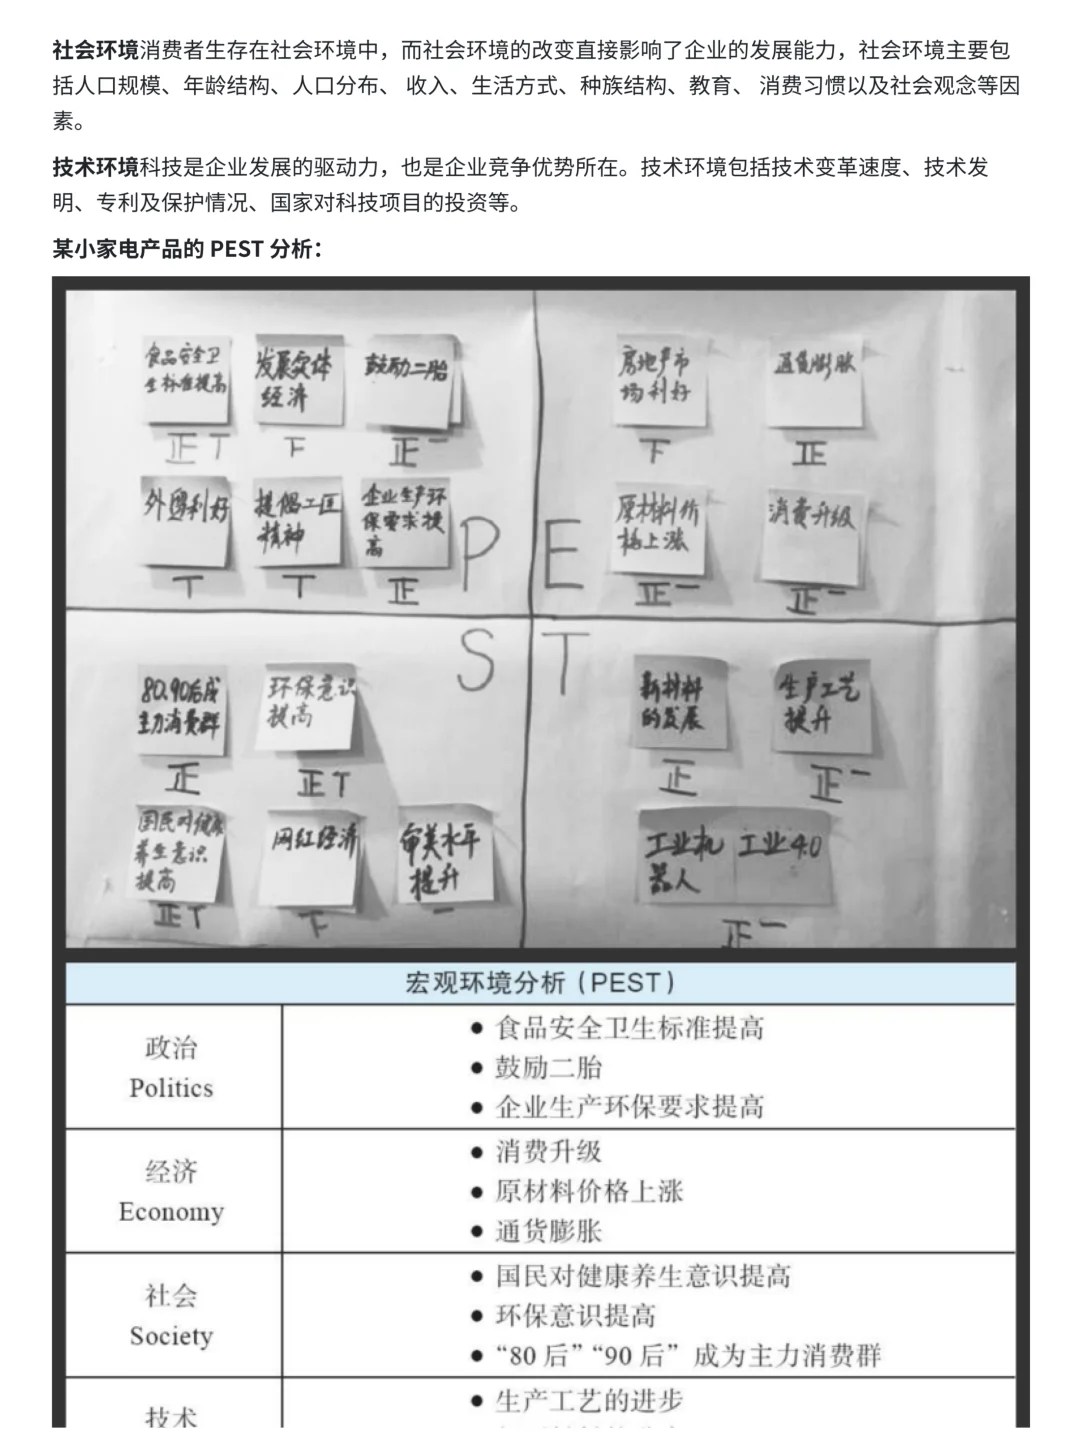 社会环境消费者生存在社会环境中，而社会环境的改变直接影响了企业的发展能力，社会环境主要包
括人口规模、年龄结构、人口分布、 收入、生活方式、种族结构、教育、 消费习惯以及社会观念等因
素。
技术环境科技是企业发展的驱动力，也是企业竞争优势所在。技术环境包括技术变革速度、技术发
明、专利及保护情况、国家对科技项目的投资等。
某小家电产品的 PEST 分析：
食品安全卫
生标准提高
正T
发展实体
经济
下
鼓励二胎
正一
外图利好
T
提倡工匠
精神
T
企业生产环
保要求提
高
正
P
房地产市
场利好
下
通货膨胀
正
E
原材料价
格上涨
正一
消费升级
正一
S
80.90后成
主力消费群
正
环保意识
提高
正T
国民对健康
养生意识
提高
正T
网红经济
下
审美水平
提升
一
T
新材料
的发展
正
生产工艺
提升
正一
工业机
器人
工业4.0
正一
宏观环境分析（PEST）
政治
Politics
● 食品安全卫生标准提高
● 鼓励二胎
● 企业生产环保要求提高
经济
Economy
● 消费升级
● 原材料价格上涨
● 通货膨胀
社会
Society
● 国民对健康养生意识提高
● 环保意识提高
● “80 后”“90 后” 成为主力消费群
技术
● 生产工艺的进步